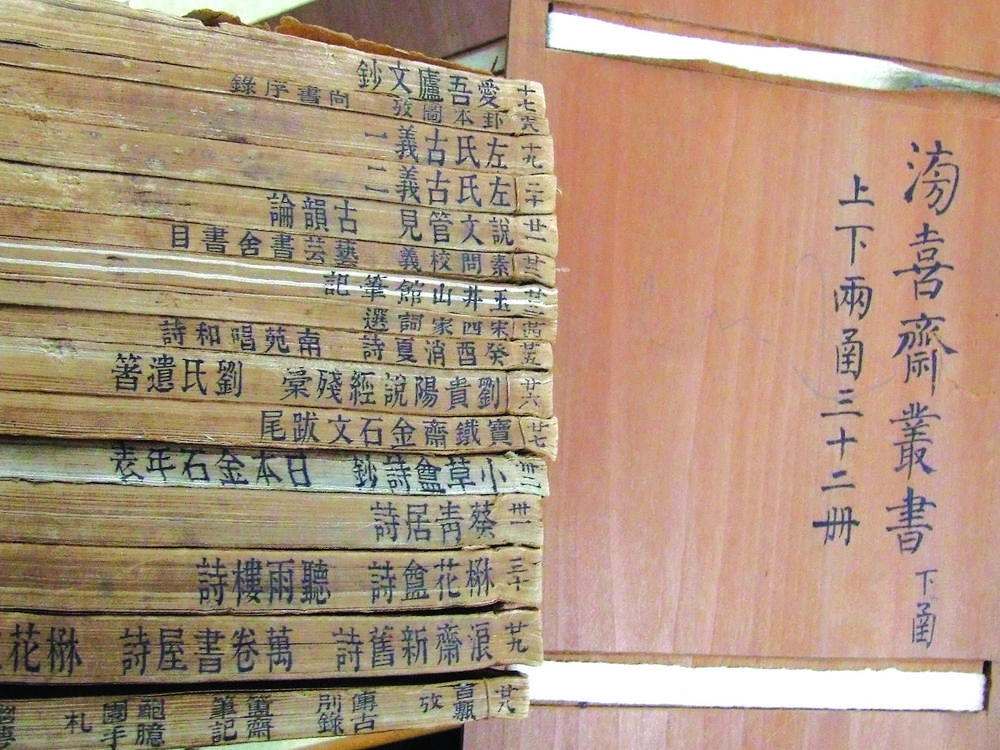 滂喜齋叢書 下函
上下兩函三十二冊
十七 愛吾廬文鈔
十八 卦本圖攷 尚書序錄
十九 左氏古義 一
二十 左氏古義 二
廿一 說文管見 古韻論
廿二 素問校義 藝芸書舍書目
廿三 玉井山館筆記
廿四 宋四家詞選
廿五 癸酉消夏詩 南苑唱和詩
廿六 劉貴陽說經殘稾 劉氏遺箸
廿七 寶鐵齋金石文跋尾
卅二 小草盦詩鈔 日本金石年表
卅一 葵青居詩
三十 楙花盦詩 聽雨樓詩
廿九 浪齋新舊詩 萬卷書屋詩 楙花
廿八 攷 傳古別錄 簠齋筆記 鮑臆園手札